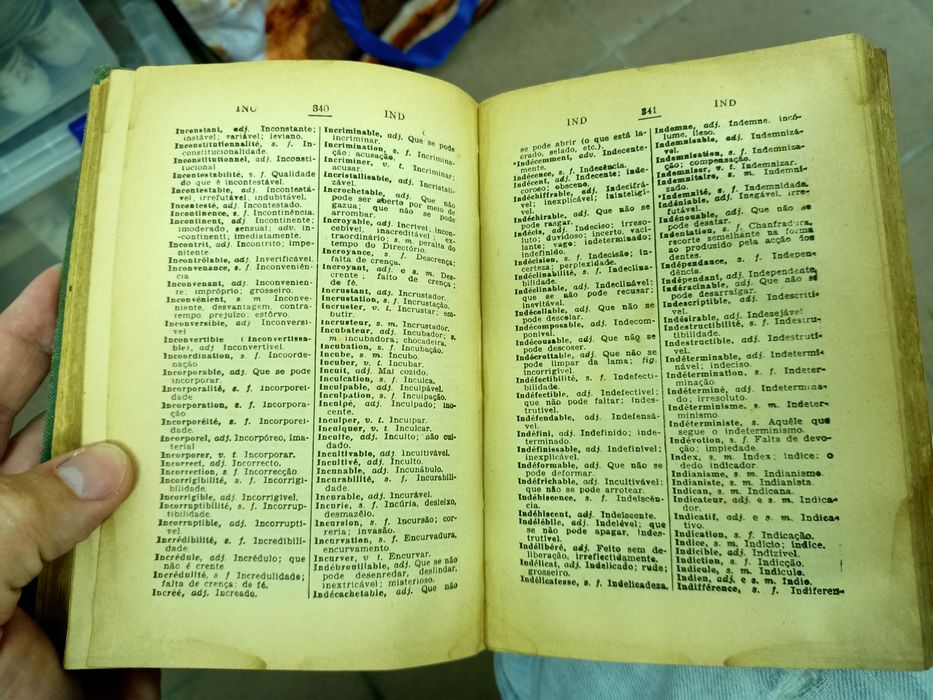 INC 340 IND
Inconstant, adj. Inconstante;
instável; variável; leviano.
Inconstitutionnalité, s. f. In-
constitucionalidade.
Inconstitutionnel, adj. Inconsti-
tucional
Incontestabilité, s. f. Qualidade
do que é incontestável.
Incontestable, adj. Incontestá-
vel, irrefutável, indubitável.
Incontesté, adj. Incontestado.
Incontinence, s. f. Incontinência.
Incontinent, adj. Incontinente;
imoderado, sensual; adv. in-
-continenti; imediatamente.
Incontrit, adj. Incontrito; impe-
nitente
Incontrôlable, adj. Inverificável.
Inconvenance, s. f. Inconveniên-
cia
Inconvenant, adj. Inconvenien-
te; impróprio; grosseiro.
Inconvénient, s. m. Inconve-
niente, desvantagem, contra-
tempo, prejuízo; estôrvo.
Inconversible, adj. Inconversí-
vel
Inconvertible (Inconvertissa-
ble), adj Inconvertível.
Incoordination, s. f. Incoorde-
nação
Incorporable, adj. Que se pode
incorporar.
Incorporalité, s. f. Incorporei-
dade
Incorporation, s. f. Incorpora-
ção
Incorporéité, s. f. Incorporei-
dade.
Incorporel, adj. Incorpóreo, ima-
terial
Incorporer, v. t. Incorporar.
Incorrect, adj. Incorrecto.
Incorrection, s. f. Incorrecção.
Incorrigibilité, s. f. Incorrigi-
bilidade.
Incorrigible, adj. Incorrigível.
Incorruptibilité, s. f. Incorrup-
tibilidade.
Incorruptible, adj. Incorruptí-
vel.
Incrédibilité, s. f. Incredibili-
dade
Incrédule, adj. Incrédulo; que
não é crente
Incrédulité, s. f Incredulidade;
falta de crença; de fé.
Incréé, adj. Increado.
Incriminable, adj. Que se pode
incriminar.
Incrimination, s. f. Incrimina-
ção; acusação.
Incriminer, v. t. Incriminar;
acusar.
Incristallisable, adj. Incristali-
zável.
Incrochetable, adj. Que não
pode ser aberto por meio de
gazua; que não se pode
arrombar.
Incroyable, adj. Incrível; incon-
cebível, inacreditável, ex-
traordinário; s. m. peralta do
tempo do Directório.
Incroyance, s. f. Descrença;
falta de crença.
Incroyant, adj. e s. m. Des-
crente; falto de crença;
de fé.
Incrustant, adj. Incrustador.
Incrustation, s. f. Incrustação.
Incruster, v. t. Incrustar; em-
butir.
Incrusteur, s. m. Incrustador.
Incubateur, adj. Incubador; s.
m incubadora; chocadeira.
Incubation, s. f. Incubação.
Incube, s. m. Íncubo.
Incuber, v. t. Incubar.
Incuit, adj. Mal cozido.
Inculcation, s. f. Inculca.
Inculpable, adj. Inculpável.
Inculpation, s. f. Inculpação.
Inculpé, adj. Inculpado; ino-
cente.
Inculper, v. t. Inculpar.
Inculquer, v. t. Inculcar.
Inculte, adj. Inculto; não cui-
dado.
Incultivable, adj. Incultivável
Incultivé, adj. Inculto.
Incunable, adj. Incunábulo.
Incurabilité, s. f. Incurabili-
dade.
Incurable, adj. Incurável.
Incurie, s. f. Incúria, desleixo,
desmazêlo.
Incursion, s. f. Incursão; cor-
reria; invasão.
Incurvation, s. f. Encurvadura,
encurvamento.
Incurver, v t. Encurvar.
Indébrouillable, adj. Que se não
pode desenredar, deslindar,
inextricável; misterioso.
Indécachetable, adj. Que não
IND 341 IND
se pode abrir (o que está la-
crado, selado, etc.).
*Indécemment, adv. Indecente-
mente.
Indécence, s. f. Indecência.
Indécent, adj. Indecente; inde-
coroso; obsceno.
Indéchiffrable, adj. Indecifrá-
vel; inexplicável; ininteligí-
vel.
Indéchirable, adj. Que não se
pode rasgar.
Indécis, adj. Indeciso; irreso-
luto; duvidoso; incerto, vaci-
lante; vago; indeterminado;
indefinido.
Indécision, s. f. Indecisão; in-
certeza; perplexidade.
Indéclinabilité, s. f. Indeclina-
bilidade.
Indéclinable, adj. Indeclinável;
que se não pode recusar;
inevitável.
Indécollable, adj. Que não se
pode descolar.
Indécomposable, adj. Indecom-
ponível.
Indécousable, adj. Que não se
pode descoser.
Indécrottable, adj. Que não se
pode limpar da lama; fig.
incorrigível.
Indéfectibilité, s. f. Indefecti-
bilidade.
Indéfectible, adj. Indefectível;
que não pode faltar; indes-
trutível.
Indéfendable, adj. Indefensá-
vel.
Indéfini, adj. Indefinido; inde-
terminado.
Indéfinissable, adj. Indefinível;
inexplicável.
Indéformable, adj. Que não se
pode deformar.
Indéfrichable, adj. Incultivável;
que não se pode arrotear.
Indéhiscence, s. f. Indeiscên-
cia.
Indéhiscent, adj. Indeiscente.
Indélébile, adj. Indelével; que
se não pode apagar, indes-
trutível.
Indélibéré, adj. Feito sem de-
liberação, irreflectidamente.
Indélicat, adj. Indelicado; rude;
grosseiro.
Indélicatesse, s. f. Indelicadeza.
Indemne, adj. Indemne, incó-
lume, ileso.
Indemnisable, adj. Indemnizá-
vel.
Indemnisation, s. f. Indemniza-
ção; compensação.
Indemniser, v t. Indemnizar.
Indemnitaire, s. m. Indemni-
zado.
*Indemnité, s. f. Indemnidade.
Indéniable, adj. Inegável, irre-
futável.
Indénouable, adj. Que não se
pode desatar.
Indentation, s. f. Chanfradura,
recorte semelhante na forma
ao produzido pela acção dos
dentes.
Indépendance, s. f. Indepen-
dência.
Indépendant, adj. Independente
Indéracinable, adj. Que não se
pode desarraigar.
Indescriptible, adj. Indescrití-
vel.
Indésirable, adj. Indesejável
Indestructibilité, s. f. Indestru-
tibilidade.
Indestructible, adj. Indestrutí-
vel.
Indéterminable, adj. Indetermi-
nável; indeciso.
Indétermination, s. f. Indeter-
minação.
Indéterminé, adj. Indetermina-
do; irresoluto.
Indéterminisme, s. m. Indeter-
minismo.
Indéterministe, s. m. Aquêle que
segue o indeterminismo.
Indévotion, s. f. Falta de devo-
ção; impiedade.
Index, s. m. Index; índice; o
dedo indicador
Indianisme, s. m. Indianismo
Indianiste, s. m. Indianista
Indican, s. m. Indicana.
Indicateur, adj. e s. m. Indica-
dor.
Indicatif, adj. e s. m. Indica-
tivo.
Indication, s. f. Indicação.
Indice, s. m. Indício; índice.
Indicible, adj. Indizível.
Indiction, s. f. Indicção.
Indicule, s. m. Indículo.
Indien, adj. e s. m. Indio.
Indifférence, s. f. Indiferen-